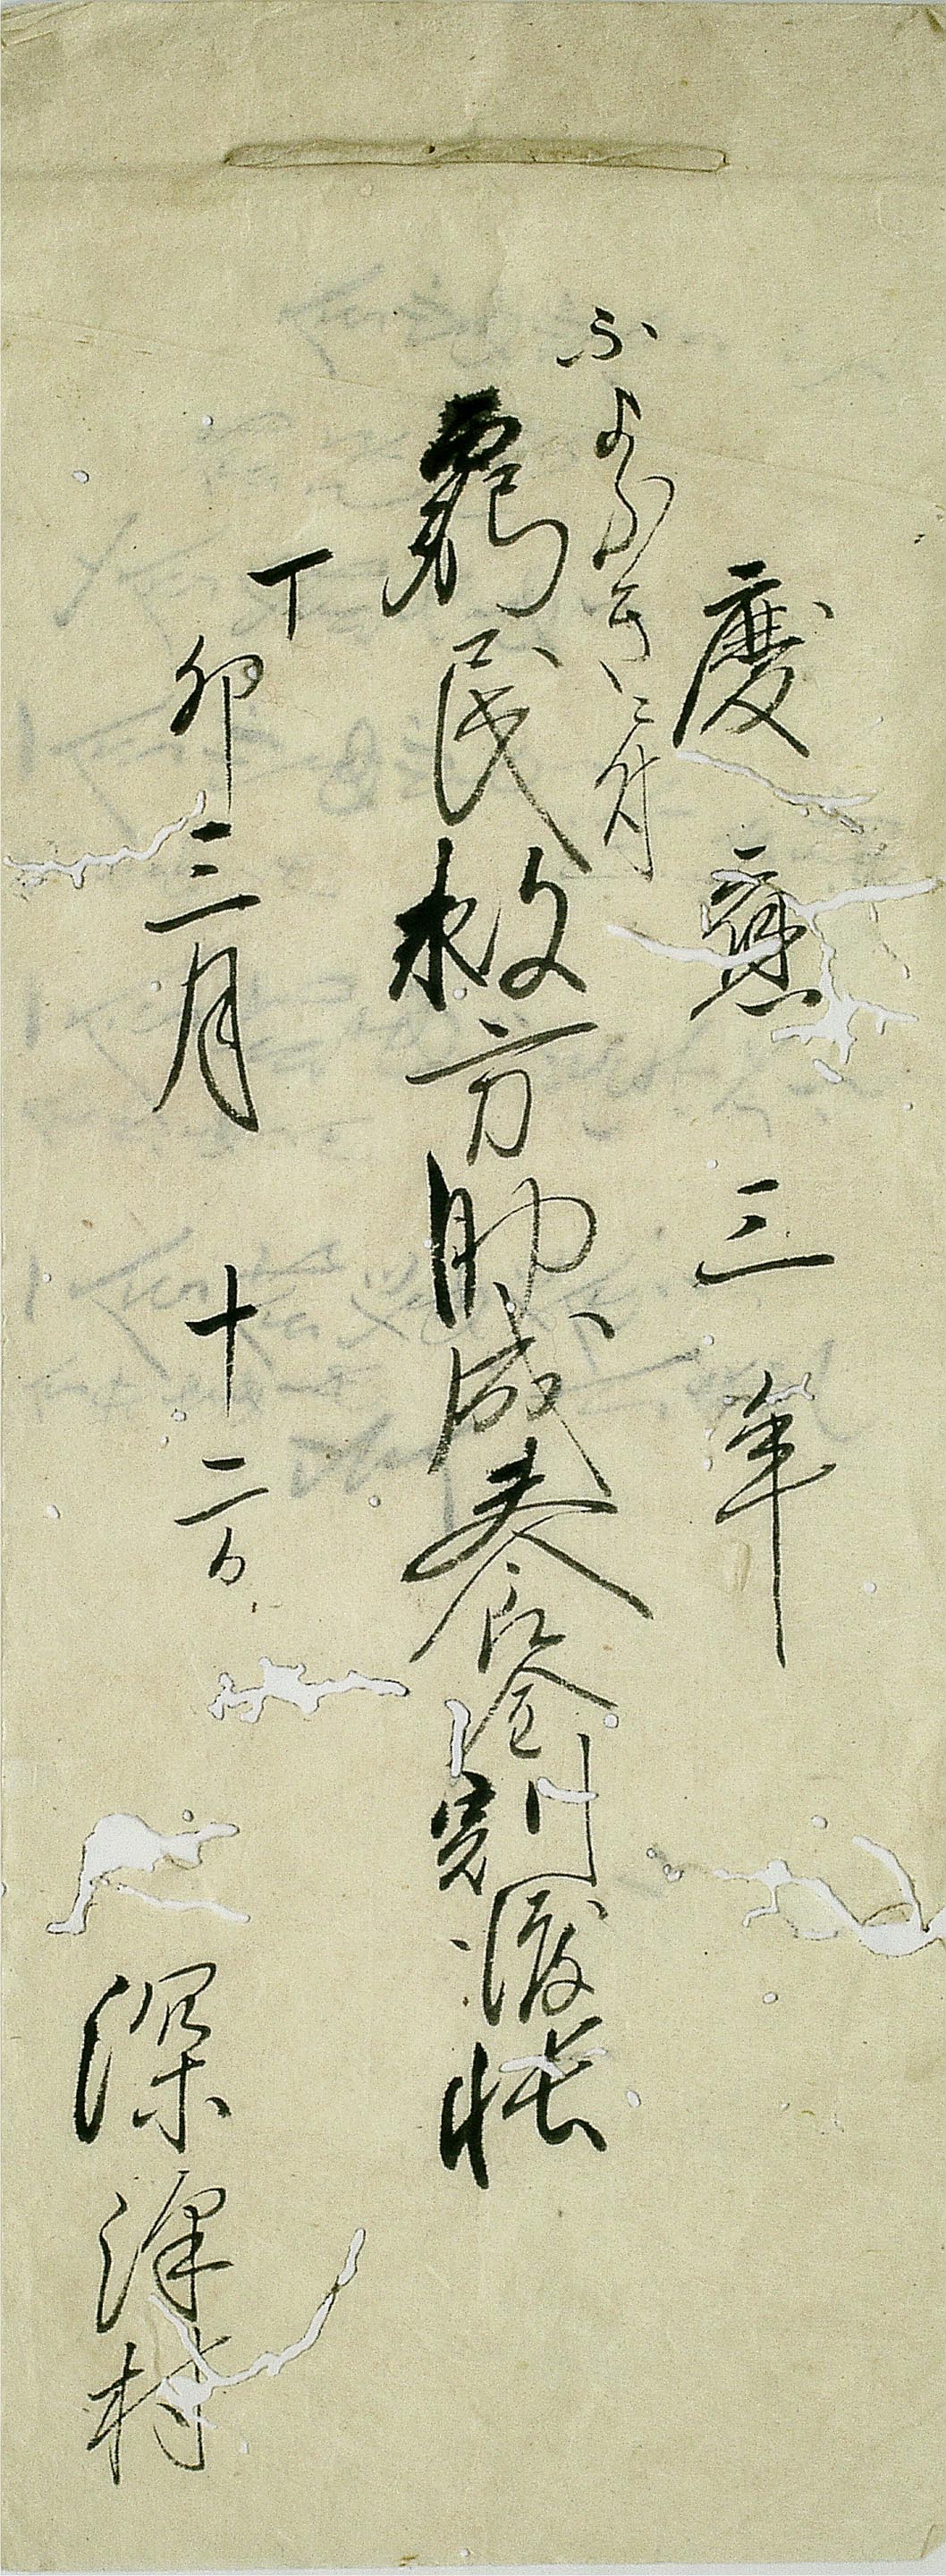 慶應三年
不よふきニ付
窮民救方助成麦代金割渡帳
丁卯三月十二日
深津村